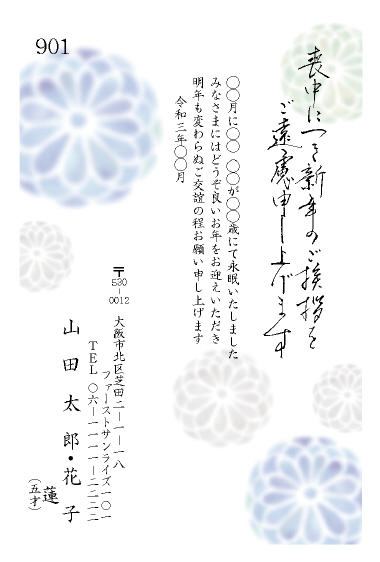 901
喪中につき新年のご挨拶を
ご遠慮申し上げます
〇〇月に〇〇 〇〇が〇〇歳にて永眠いたしました
みなさまにはどうぞ良いお年をお迎えいただき
明年も変わらぬご交誼の程お願い申し上げます
令和三年〇〇月
〒530-0012
大阪市北区芝田二ー一ー一八
ファーストサンライズ一〇一
TEL〇六ー一一一一ー二二二二
山田太郎・花子
蓮
(五才)